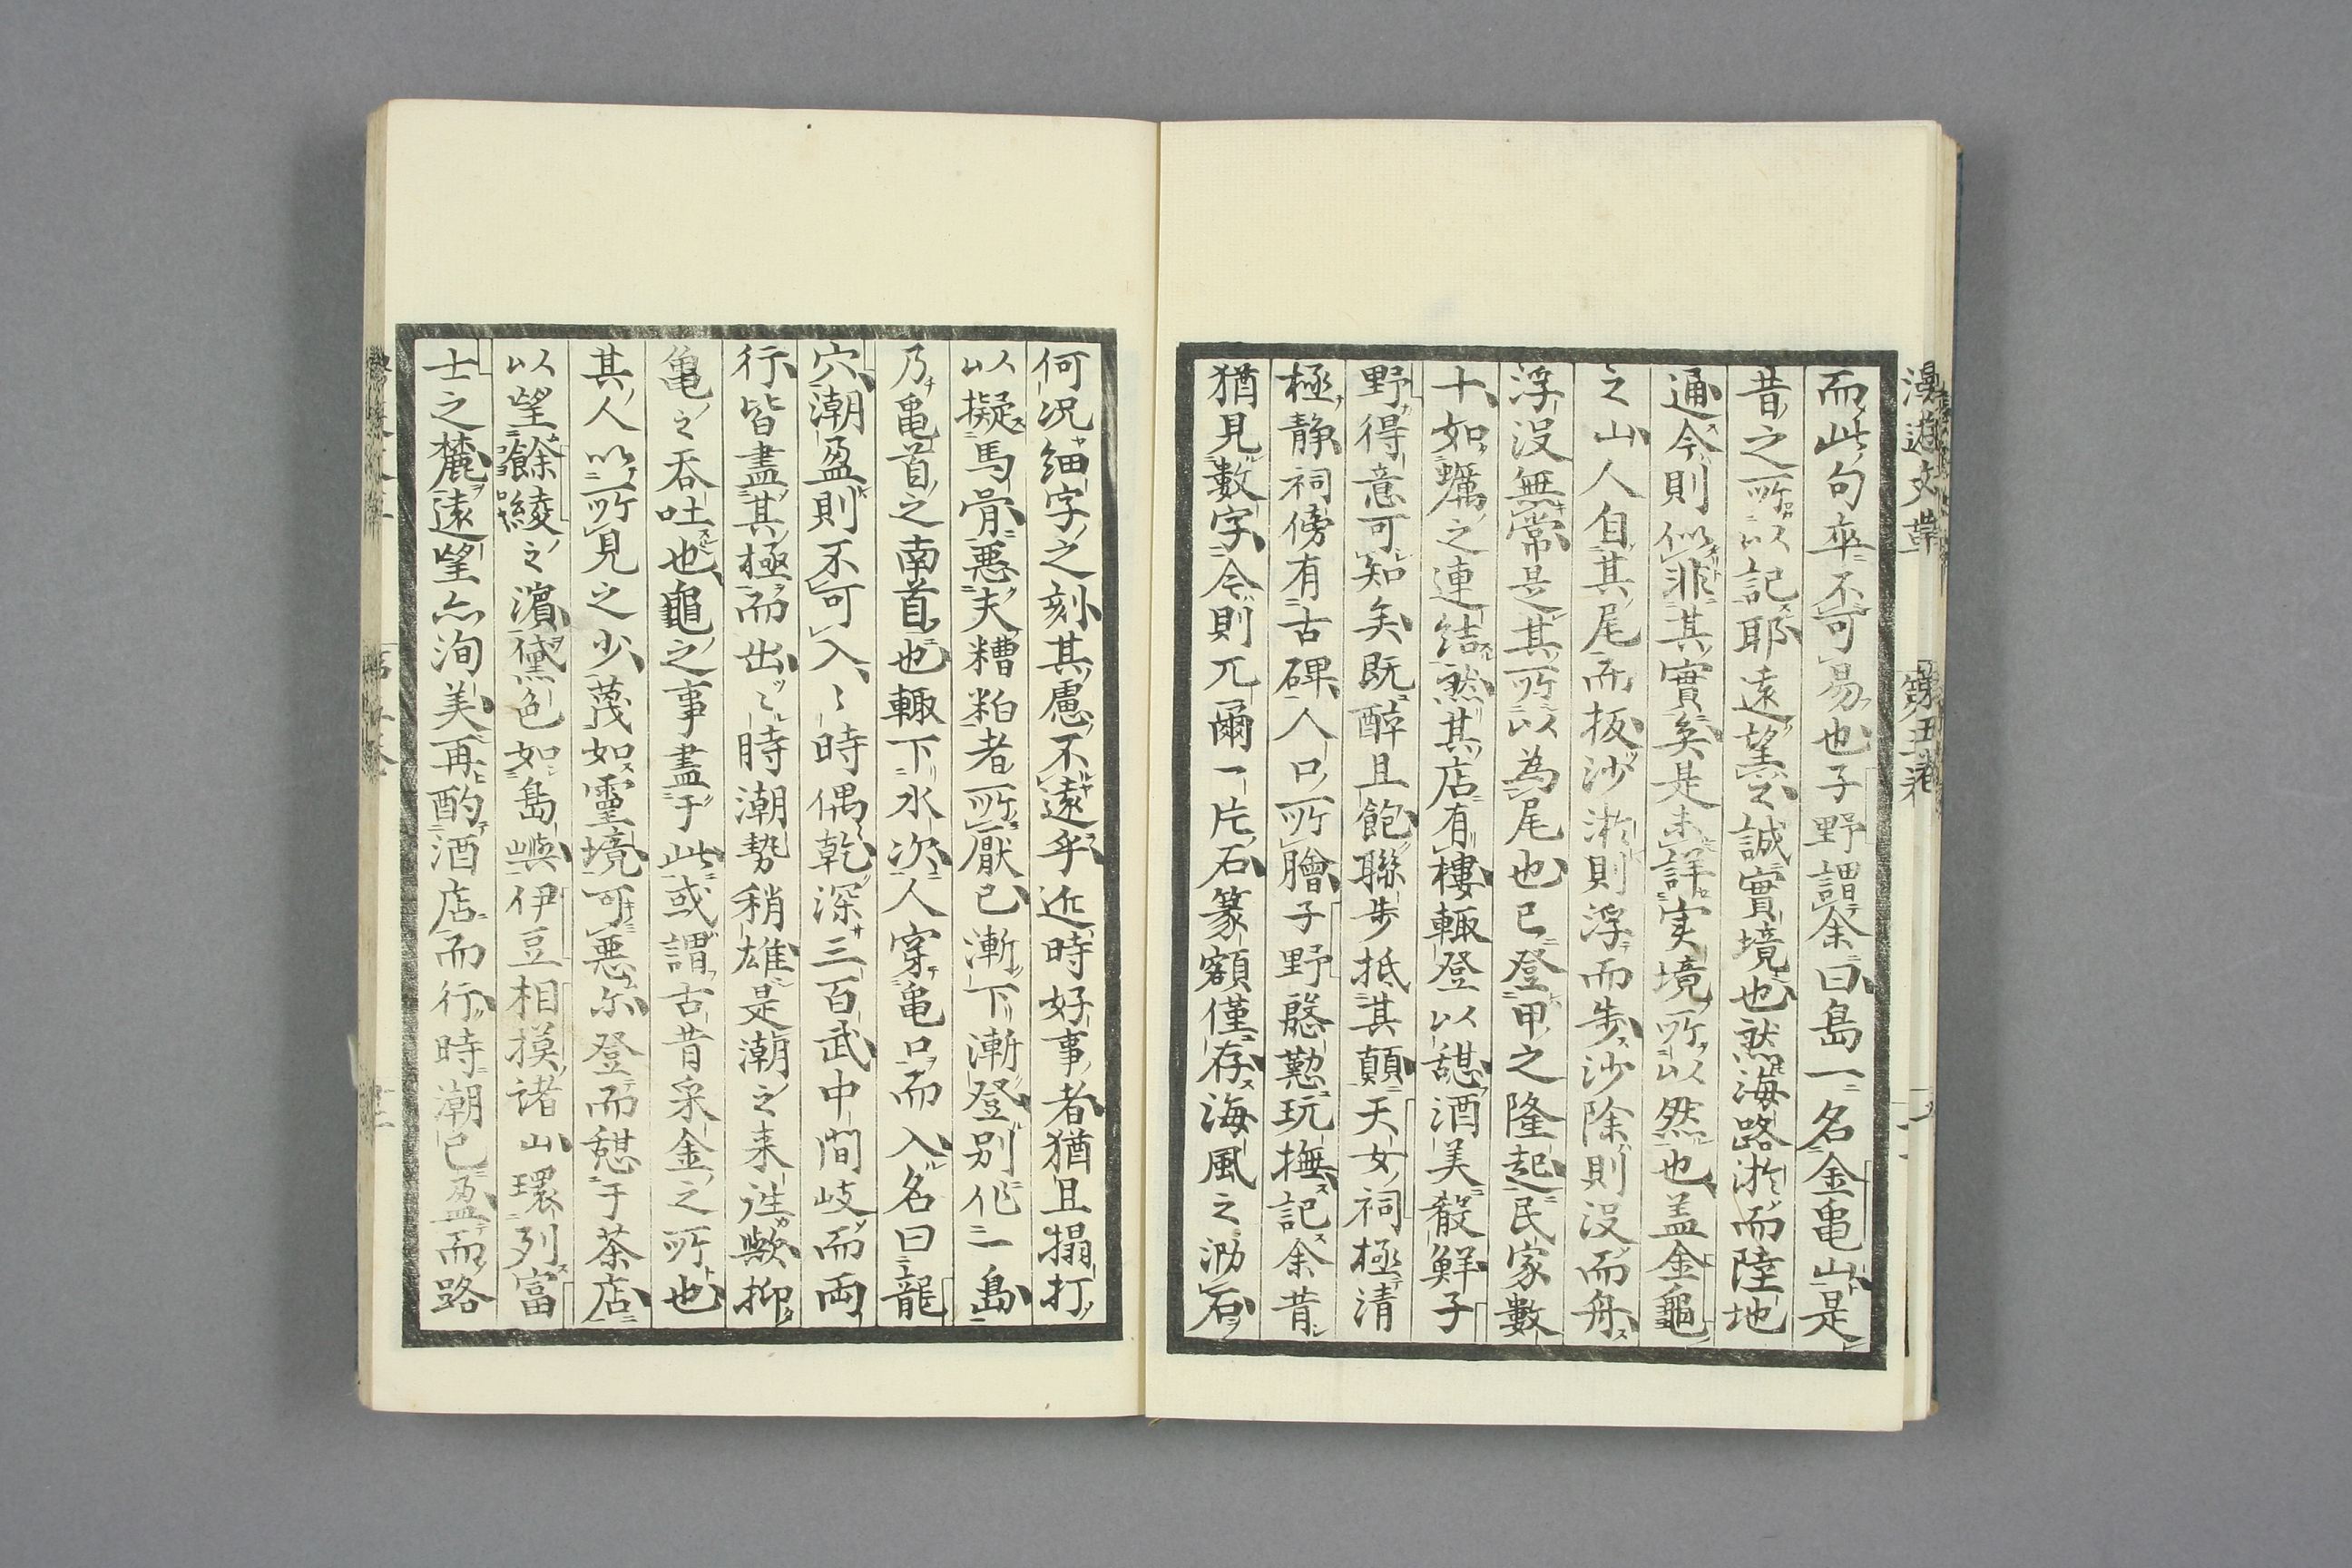 漫遊文草
第五卷
而此句卒不可易也子野謂余曰島一名金亀山是
昔之所以記耶遠望之誠實境也然海路淤而陸地
通今則似非其實矣是未詳実境所以然也盖金龜
之山人自其尾而扳沙淤則浮而步沙除則没而舟
浮没無常是其所以為尾也已登甲之隆起民家數
十如蠣之連結然其店有樓輙登以憇酒美殽鮮子
野得意可知矣既醉且飽聯步抵其顛天女祠極清
極静祠傍有古碑人口所膾子野慇懃玩撫記余昔
猶見數字今則兀爾一片石篆額僅存海風之泐石
何况細字之刻其慮不遠乎近時好事者猶且搨打
以擬馬骨悪夫糟粕者所厭已漸下漸登別作一島
乃亀首之南首也輙下水次人穿亀口而入名曰龍
穴潮盈則不可入〻時偶乾深三百武中間岐而両
行皆盡其極而出〻時潮勢稍雄是潮之来往歟抑
亀之呑吐也龜之事盡于此或謂古昔采金之所也
其人以所見之少蔑如靈境可悪尒登而憇于茶店
以望餘綾之濵黛色如島嶼伊豆相摸諸山環列富
士之麓遠望亦洵美再酌酒店而行時潮已盈而路